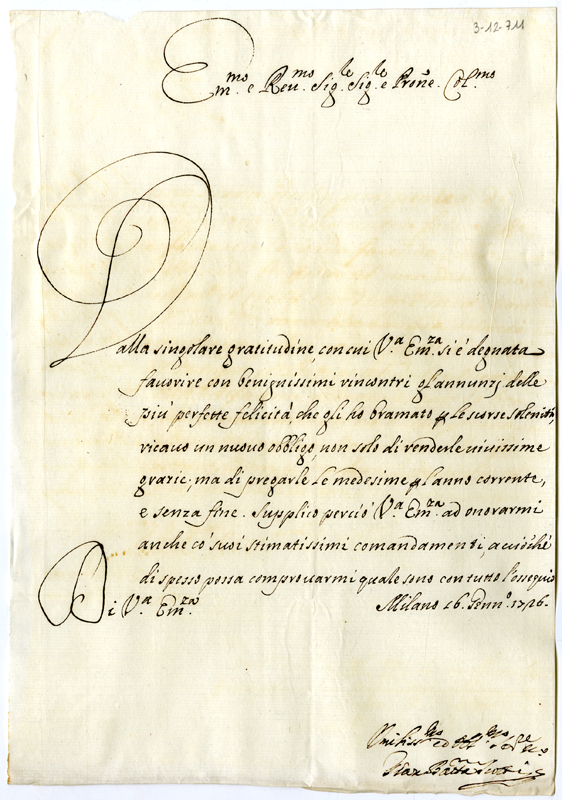 3-12-711
Em.mo e Reu.mo Sig.le Sig.le e Prone. Col.mo
Dalla singolare gratitudine, con cui V.a Em.za si é degnata
favorire con benignissimi rincontri gl'annunzj delle
piú perfette felicitá, che gli ho bramato le scorse solenitá,
ricavo un nuovo obbligo, non solo di renderle vivissime
grazie, ma di pregarle le medesime l'anno corrente,
e senza fine. Supplico perció V.a Em.za ad onorarmi
anche có suoi stimatissimi comandamenti, accióché
di spesso possa comprouarmi quale sono con tutto l'ossequio
Di V.a Em.za Milano 16. Genn.o 1726.